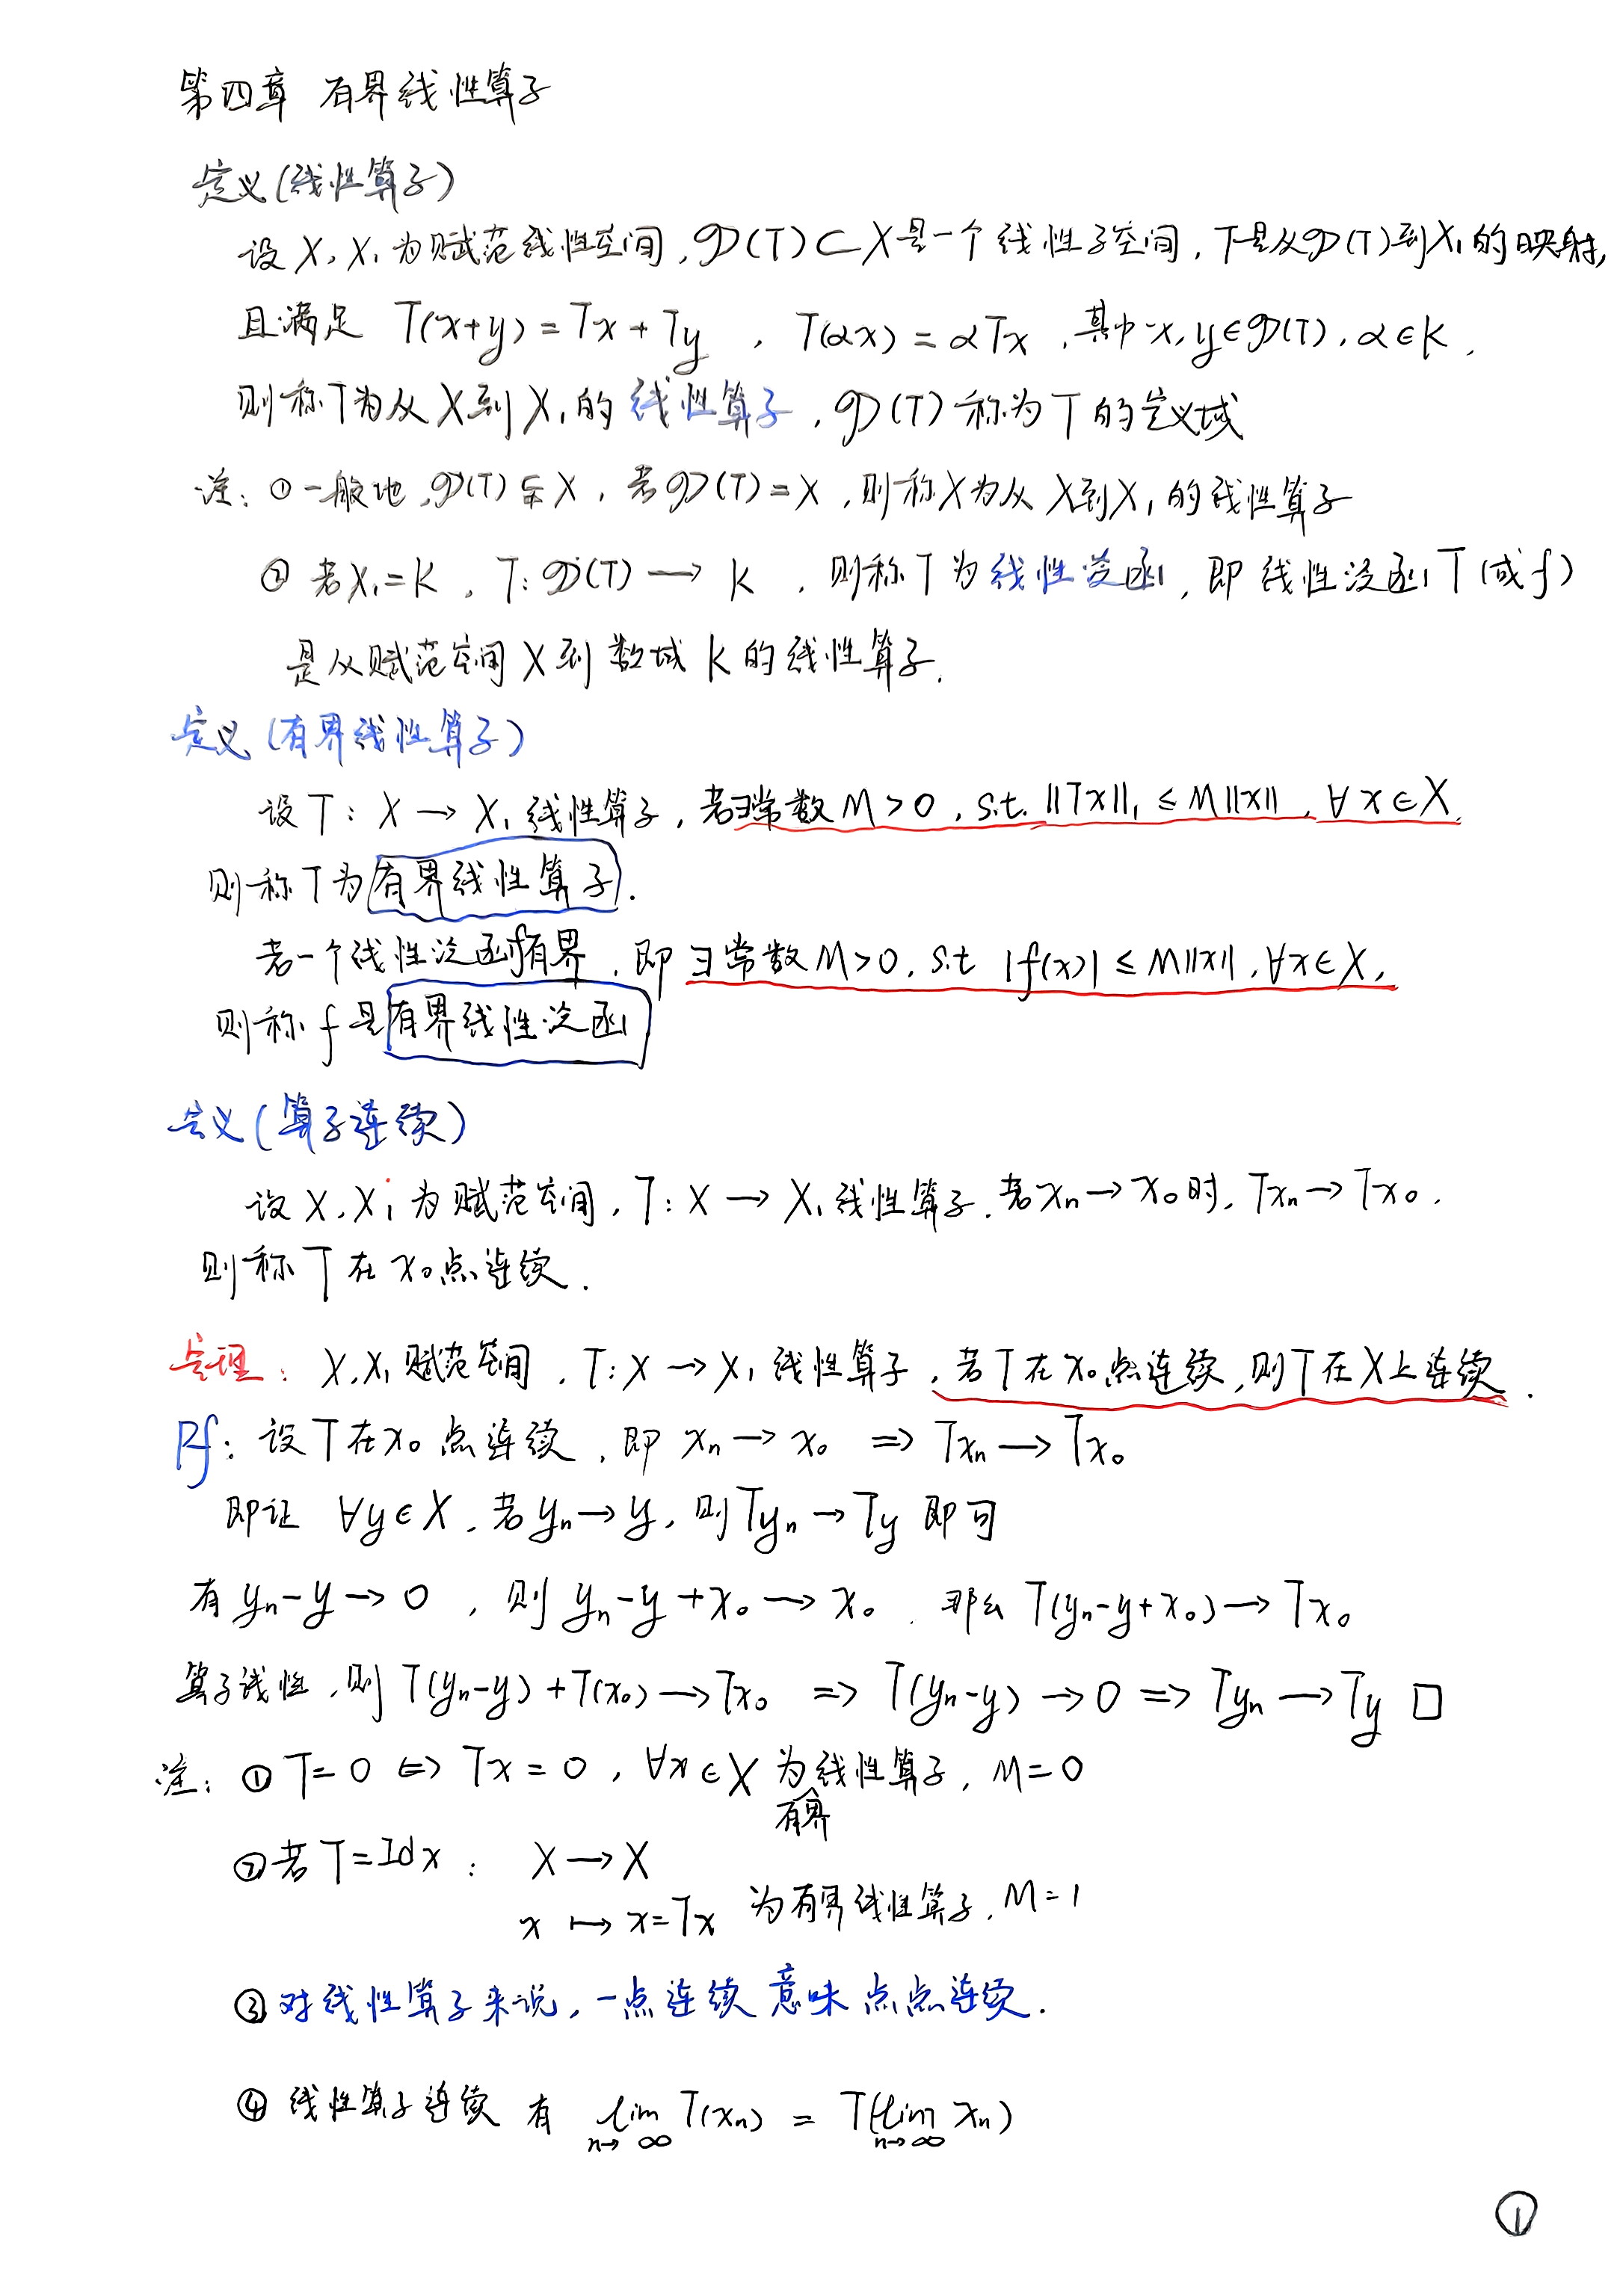 第四章 有界线性算子
定义(线性算子)
设 X, X₁ 为赋范线性空间, 𝒟(T)⊂X 是一个线性子空间, T是从𝒟(T)到X₁的映射,
且满足 T(x+y)=Tx+Ty , T(αx)=αTx , 其中 x,y∈𝒟(T), α∈K ,
则称T为从X到X₁的线性算子, 𝒟(T)称为T的定义域
注: ①一般地, 𝒟(T)⊊X, 若𝒟(T)=X, 则称X为从X到X₁的线性算子
② 若X₁=K , T: 𝒟(T)⟶K , 则称T为线性泛函, 即线性泛函T(或f)
是从赋范空间X到数域K的线性算子.
定义(有界线性算子)
设T: X→X₁ 线性算子, 若∃常数M>0, s.t. ||Tx||₁≤M||x||, ∀x∈X,
则称T为有界线性算子.
若一个线性泛函f有界, 即∃常数M>0, s.t |f(x)|≤M||x||, ∀x∈X,
则称f是有界线性泛函
定义(算子连续)
设X,X₁为赋范空间, T: X→X₁线性算子. 若xₙ→x₀时, Txₙ→Tx₀,
则称T在x₀点连续.
定理: X,X₁赋范空间, T: X→X₁线性算子, 若T在x₀点连续, 则T在X上连续.
Pf: 设T在x₀点连续, 即 xₙ→x₀ ⇒ Txₙ⟶Tx₀
即证 ∀y∈X, 若yₙ→y, 则Tyₙ→Ty 即可
有 yₙ-y→0 , 则 yₙ-y+x₀⟶x₀ . 那么 T(yₙ-y+x₀)⟶Tx₀
算子线性, 则 T(yₙ-y)+T(x₀)⟶Tx₀ ⇒ T(yₙ-y)→0 ⇒ Tyₙ⟶Ty □
注: ① T=0 ⇔ Tx=0, ∀x∈X 为有界线性算子, M=0
② 若T=Idx : X⟶X
x ⟼ x=Tx 为有界线性算子, M=1
③ 对线性算子来说, 一点连续意味点点连续.
④ 线性算子连续 有 lim_{n→∞} T(xₙ) = T(lim_{n→∞} xₙ)
①